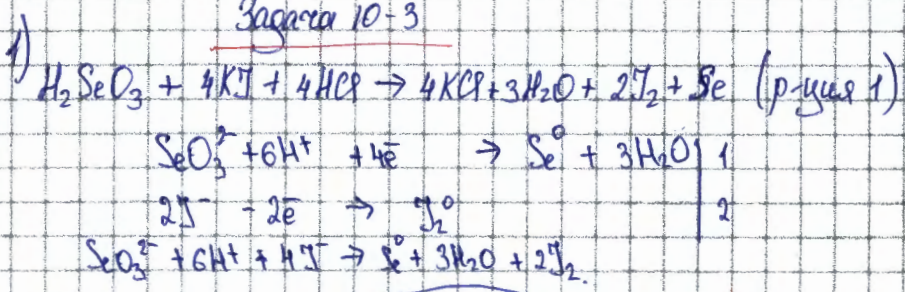 Задача 10-3
1)
H₂SeO₃ + 4KJ + 4HCl → 4KCl + 3H₂O + 2J₂ + Se (р-ция 1)
SeO₃²⁻ + 6H⁺ + 4ē → Se⁰ + 3H₂O | 1
2J⁻ - 2ē → J₂⁰ | 2
SeO₃²⁻ + 6H⁺ + 4J⁻ → Se⁰ + 3H₂O + 2J₂.